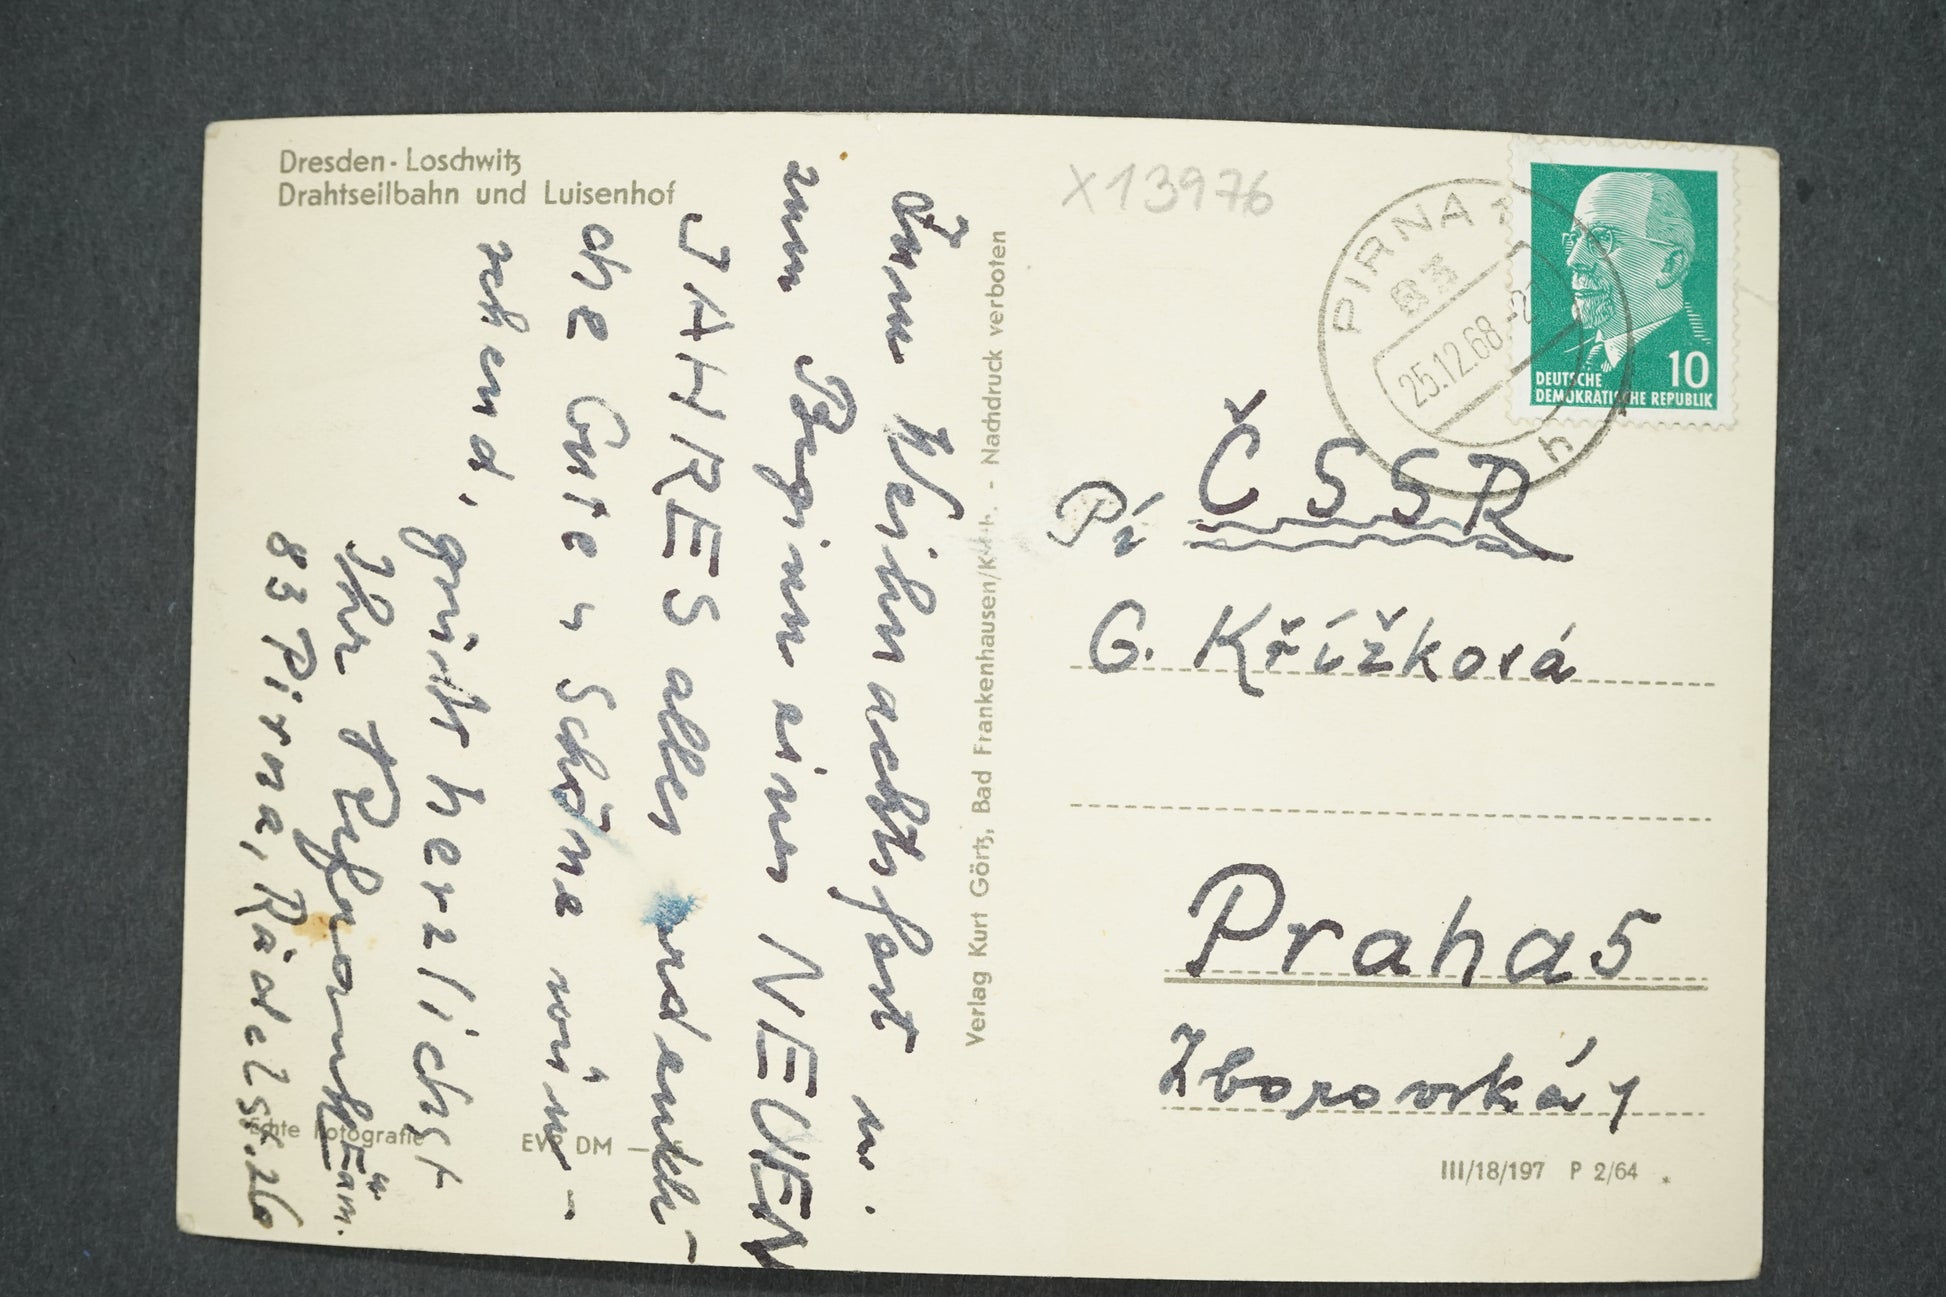 Dresden-Loschwitz
Drahtseilbahn und Luisenhof
X13976
PIRNA 1
83
25.12.68.-
h
10
DEUTSCHE
DEMOKRATISCHE REPUBLIK
Zum Weihnachtsfest u.
zum Beginn eines NEUEN
JAHRES alles erdenkli-
che Gute u Schöne wün-
schend,
grüßt herzlichst
Ihr
u Fam.
83 Pirna, Rädelstr. 26
Echte Fotografie
EVP DM —
Verlag Kurt Görtz, Bad Frankenhausen/Kyffh. - Nachdruck verboten
Pí
ČSSR
G. Křížková
Praha 5
Zborovská 1
III/18/197 P 2/64